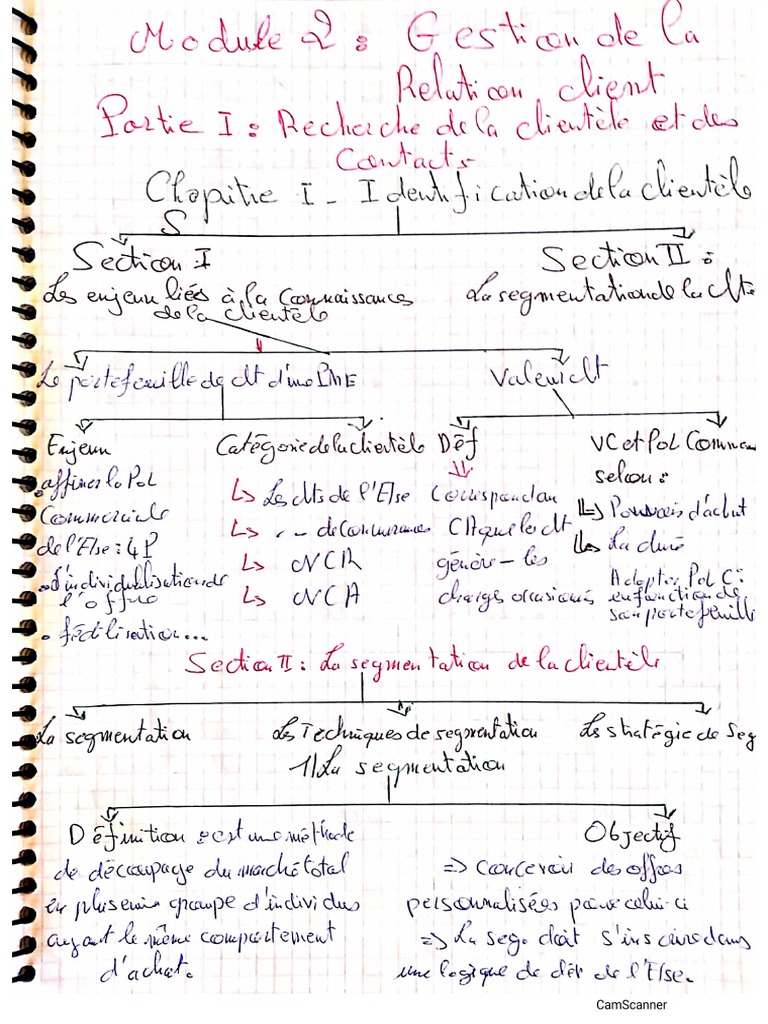 Module 2 : Gestion de la
Relation client
Partie I : Recherche de la clientèle et des
Contacts
Chapitre I - Identification de la clientèle
S
Section I
Section II :
Les enjeux liés à la Connaissances
de la clientèle
La segmentation de la clte
Le portefeuille de clt d'une PME
Valeur clt
Enjeux
Catégorie de la clientèle
Déf
VC et Pol Commer
selon :
affiner la Pol
Commerciale
de l'Else : 4P
d'individualisation de
l'offre
• fidélisation...
↳ Les clts de l'Else
↳ " - de concurrence
↳ NCR
↳ NCA
Correspond au
CA que le clt
génèr - les
charges occasionés
↳ Pouvoir d'achat
↳ La durée
Adapter Pol C :
en fonction de
son portefeuille
Section II : La segmentation de la clientèle
La segmentation
Les Techniques de segmentation
Les stratégie de Seg
1) La segmentation
Définition : c'est une méthode
de découpage du marché total
en plusieurs groupe d'individus
ayant le même comportement
d'achat.
Objectif
=> Concevoir des offres
personnalisées pour celui-ci
=> La seg. doit s'inscrire dans
une logique de dév de l'Else.
CamScanner